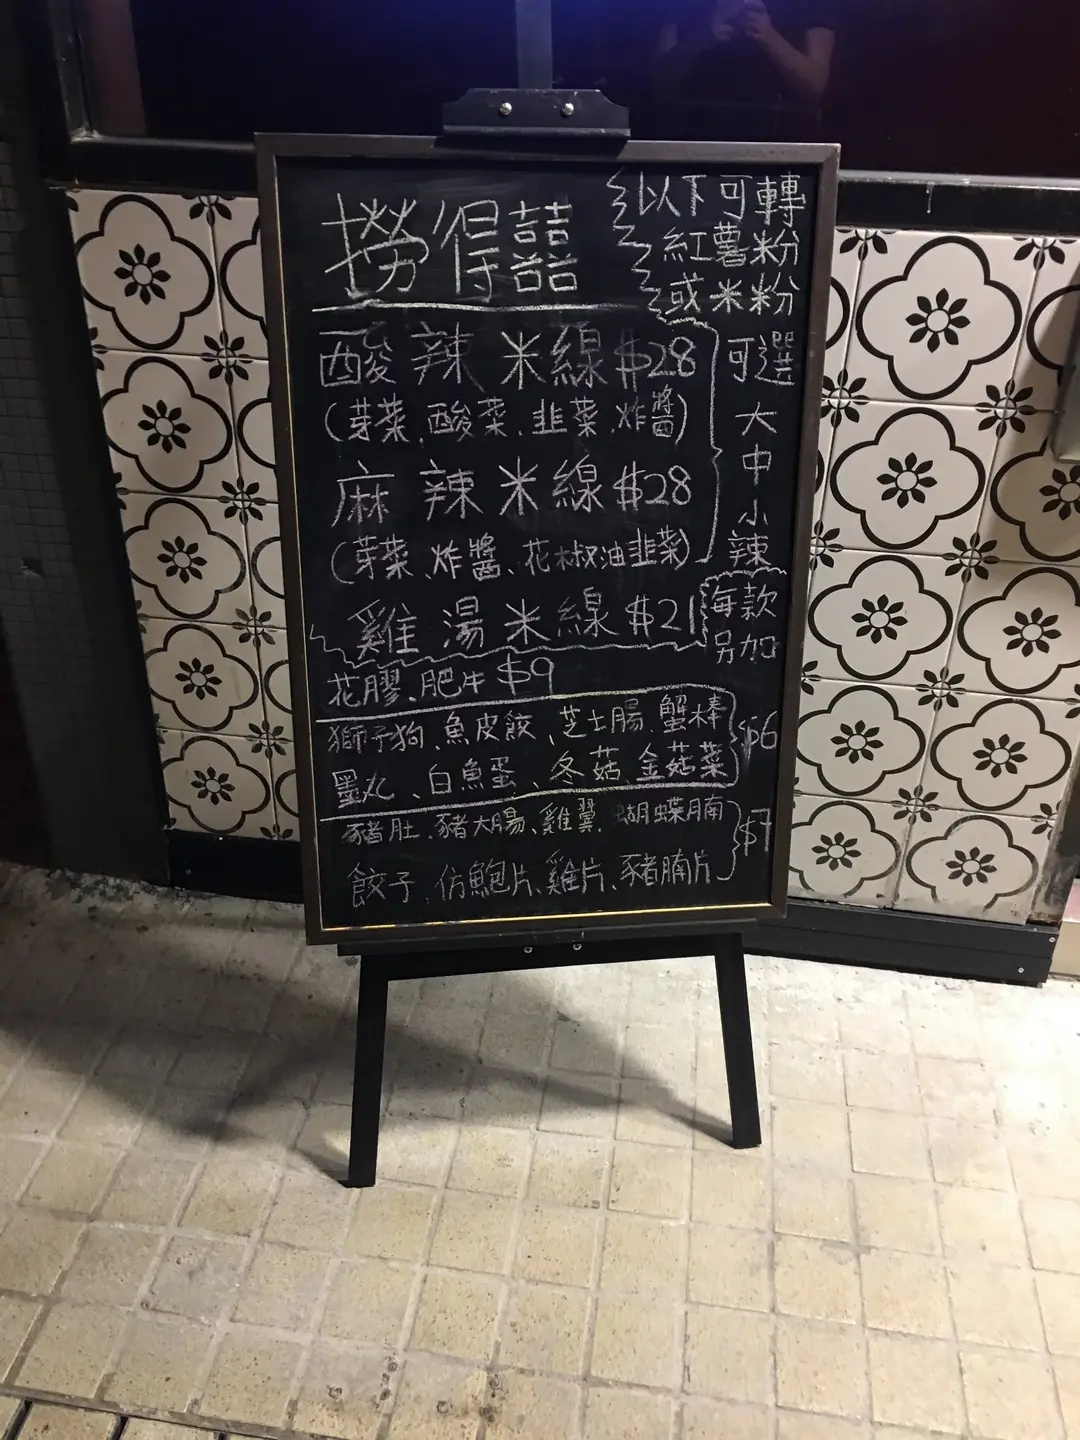 撈得囍
以下可轉
紅薯粉
或米粉
酸辣米線 $28
(芽菜、酸菜、韭菜、炸醬)
麻辣米線 $28
(芽菜、炸醬、花椒油韭菜)
可選
大
中
小
辣
雞湯米線 $21
每款
另加
花膠、肥牛 $9
獅子狗、魚皮餃、芝士腸、蟹棒
墨丸、白魚蛋、冬菇、金菇菜
$6
豬肚、豬大腸、雞翼、蝴蝶腩
餃子、仿鮑片、雞片、豬腩片
$7